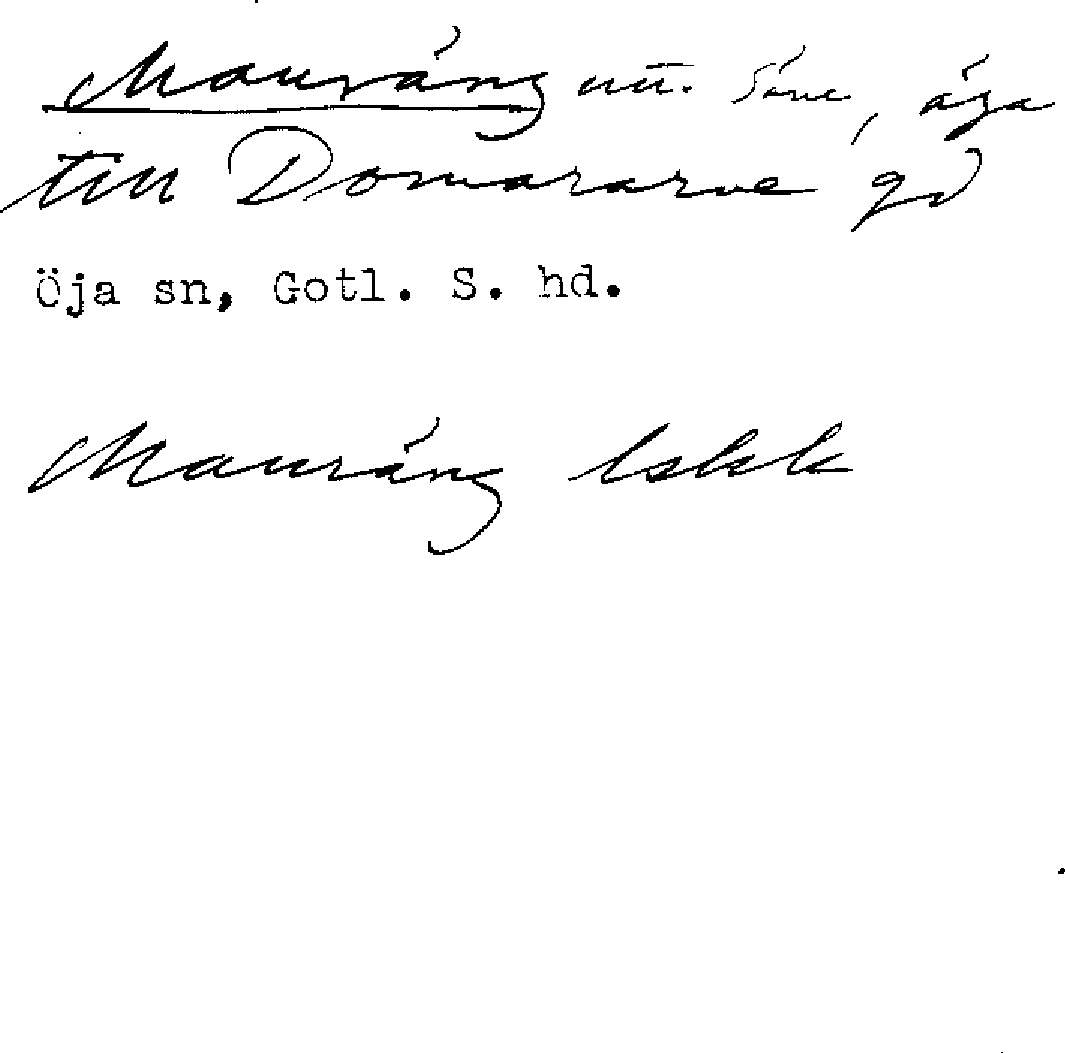 Mauräng utt. Säve, äga
till Domararve gd
Öja sn, Gotl. S. hd.
Mauräng lskk